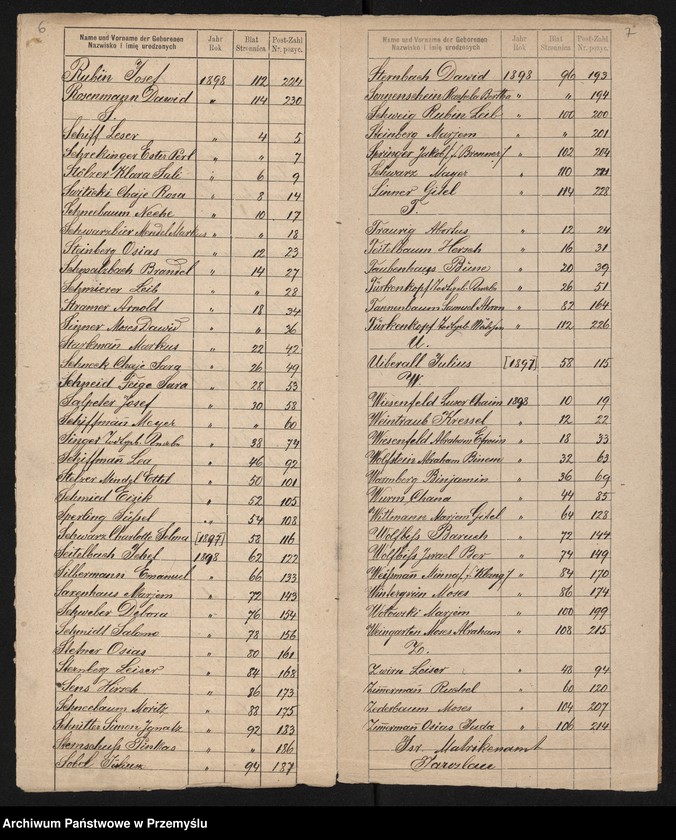 6
Name und Vorname der Geborenen Jahr Blatt Post-Zahl
Nazwisko i imię urodzonych Rok Stronnica Nr. pozyc.
Rubin Josef 1898 112 224
Rosenmann Dawid " 114 230
S.
Schiff Leser " 4 5
Schrekinger Ester Perl " " 7
Stolzer Klara Juli " 6 9
Switzki Chaje Rosa " 8 14
Schneebaum Neche " 10 17
Schwarzbier Mendel Markus " " 18
Steinberg Osias " 12 23
Schwalbach Brandel " 14 27
Schmierer Leib " " 28
Stramer Arnold " 18 34
Sinner Moses Dawid " " 36
Starkman Markus " 22 42
Schneck Chaje Sara " 26 49
Schneid Feige Sara " 28 53
Salpeter Josef " 30 58
Schiffman Meyer " " 60
Singer todtgeb. Knabe " 38 74
Schiffman Lea " 46 92
Stelzer Mindel Ettel " 50 101
Schmied Eisik " 52 105
Sperling Süssel " 54 108
Schwarz Charlotte Selma [1897] 58 116
Seitelbach Ichel 1898 62 122
Silbermann Emanuel " 66 133
Sazenhaus Marjem " 72 143
Schweber Debora " 76 154
Schmidt Salomo " 78 156
Stefner Osias " 80 161
Sternberg Leiser " 84 168
Sens Hirsch " 86 173
Schneebaum Moritz " 88 175
Schnitter Simon Ignatz " 92 183
Sternschuss Pinkas " " 186
Sobel Julius " 94 187
7
Name und Vorname der Geborenen Jahr Blatt Post-Zahl
Nazwisko i imię urodzonych Rok Stronnica Nr. pozyc.
Sternbach Dawid 1898 96 193
Sonnenschein Bertha " " 194
Schweig Rubin Leib " 100 200
Steinberg Marjem " " 201
Springer Jakob f. Brenner / " 102 204
Schwarz Mayer " 110 221
Sinner Gitel " 114 228
T.
Traurig " 12 24
Teitelbaum Hersch " 16 31
Taubenhaus Bune " 20 39
Türkenkopf todtgeb. Knabe " 26 51
Tannenbaum Samuel Aron " 82 164
Türkenkopf todtgeb. Mädchen " 112 226
U.
Uiberall Julius [1897] 58 115
W.
Wiesenfeld Leser Chaim 1898 10 19
Weintraub Kressel " 12 22
Wiesenfeld Abraham Efroim " 18 33
Wolfstein Abraham Binem " 32 63
Warmberg Binjamin " 36 69
Wurm Chana " 44 85
Wittmann Marjem Gitel " 64 128
Wolfbiss Baruch " 72 144
Wolfbiss Israel Ber " 74 149
Weissman Minna " 84 170
Wintergrün Moses " 86 174
Wolowski Marjem " 100 199
Weingarten Moses Abraham " 108 215
Z.
Zwirn Leiser " 48 94
Zimmerman " 60 120
Zederbaum Moses " 104 207
Zimmerman Osias Juda " 106 214
Isr. Matrikenamt
Jaroslau
Archiwum Państwowe w Przemyślu